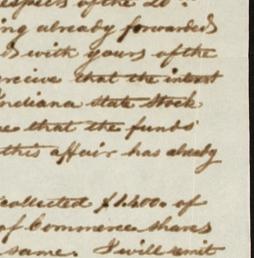 respects of the 20th.
ing already forwarded
is with yours of the
erceive that the interest
Indiana state Stock
e that the funds
this affair has already
collected $1200. of
of Commerce shares
same. I will remit